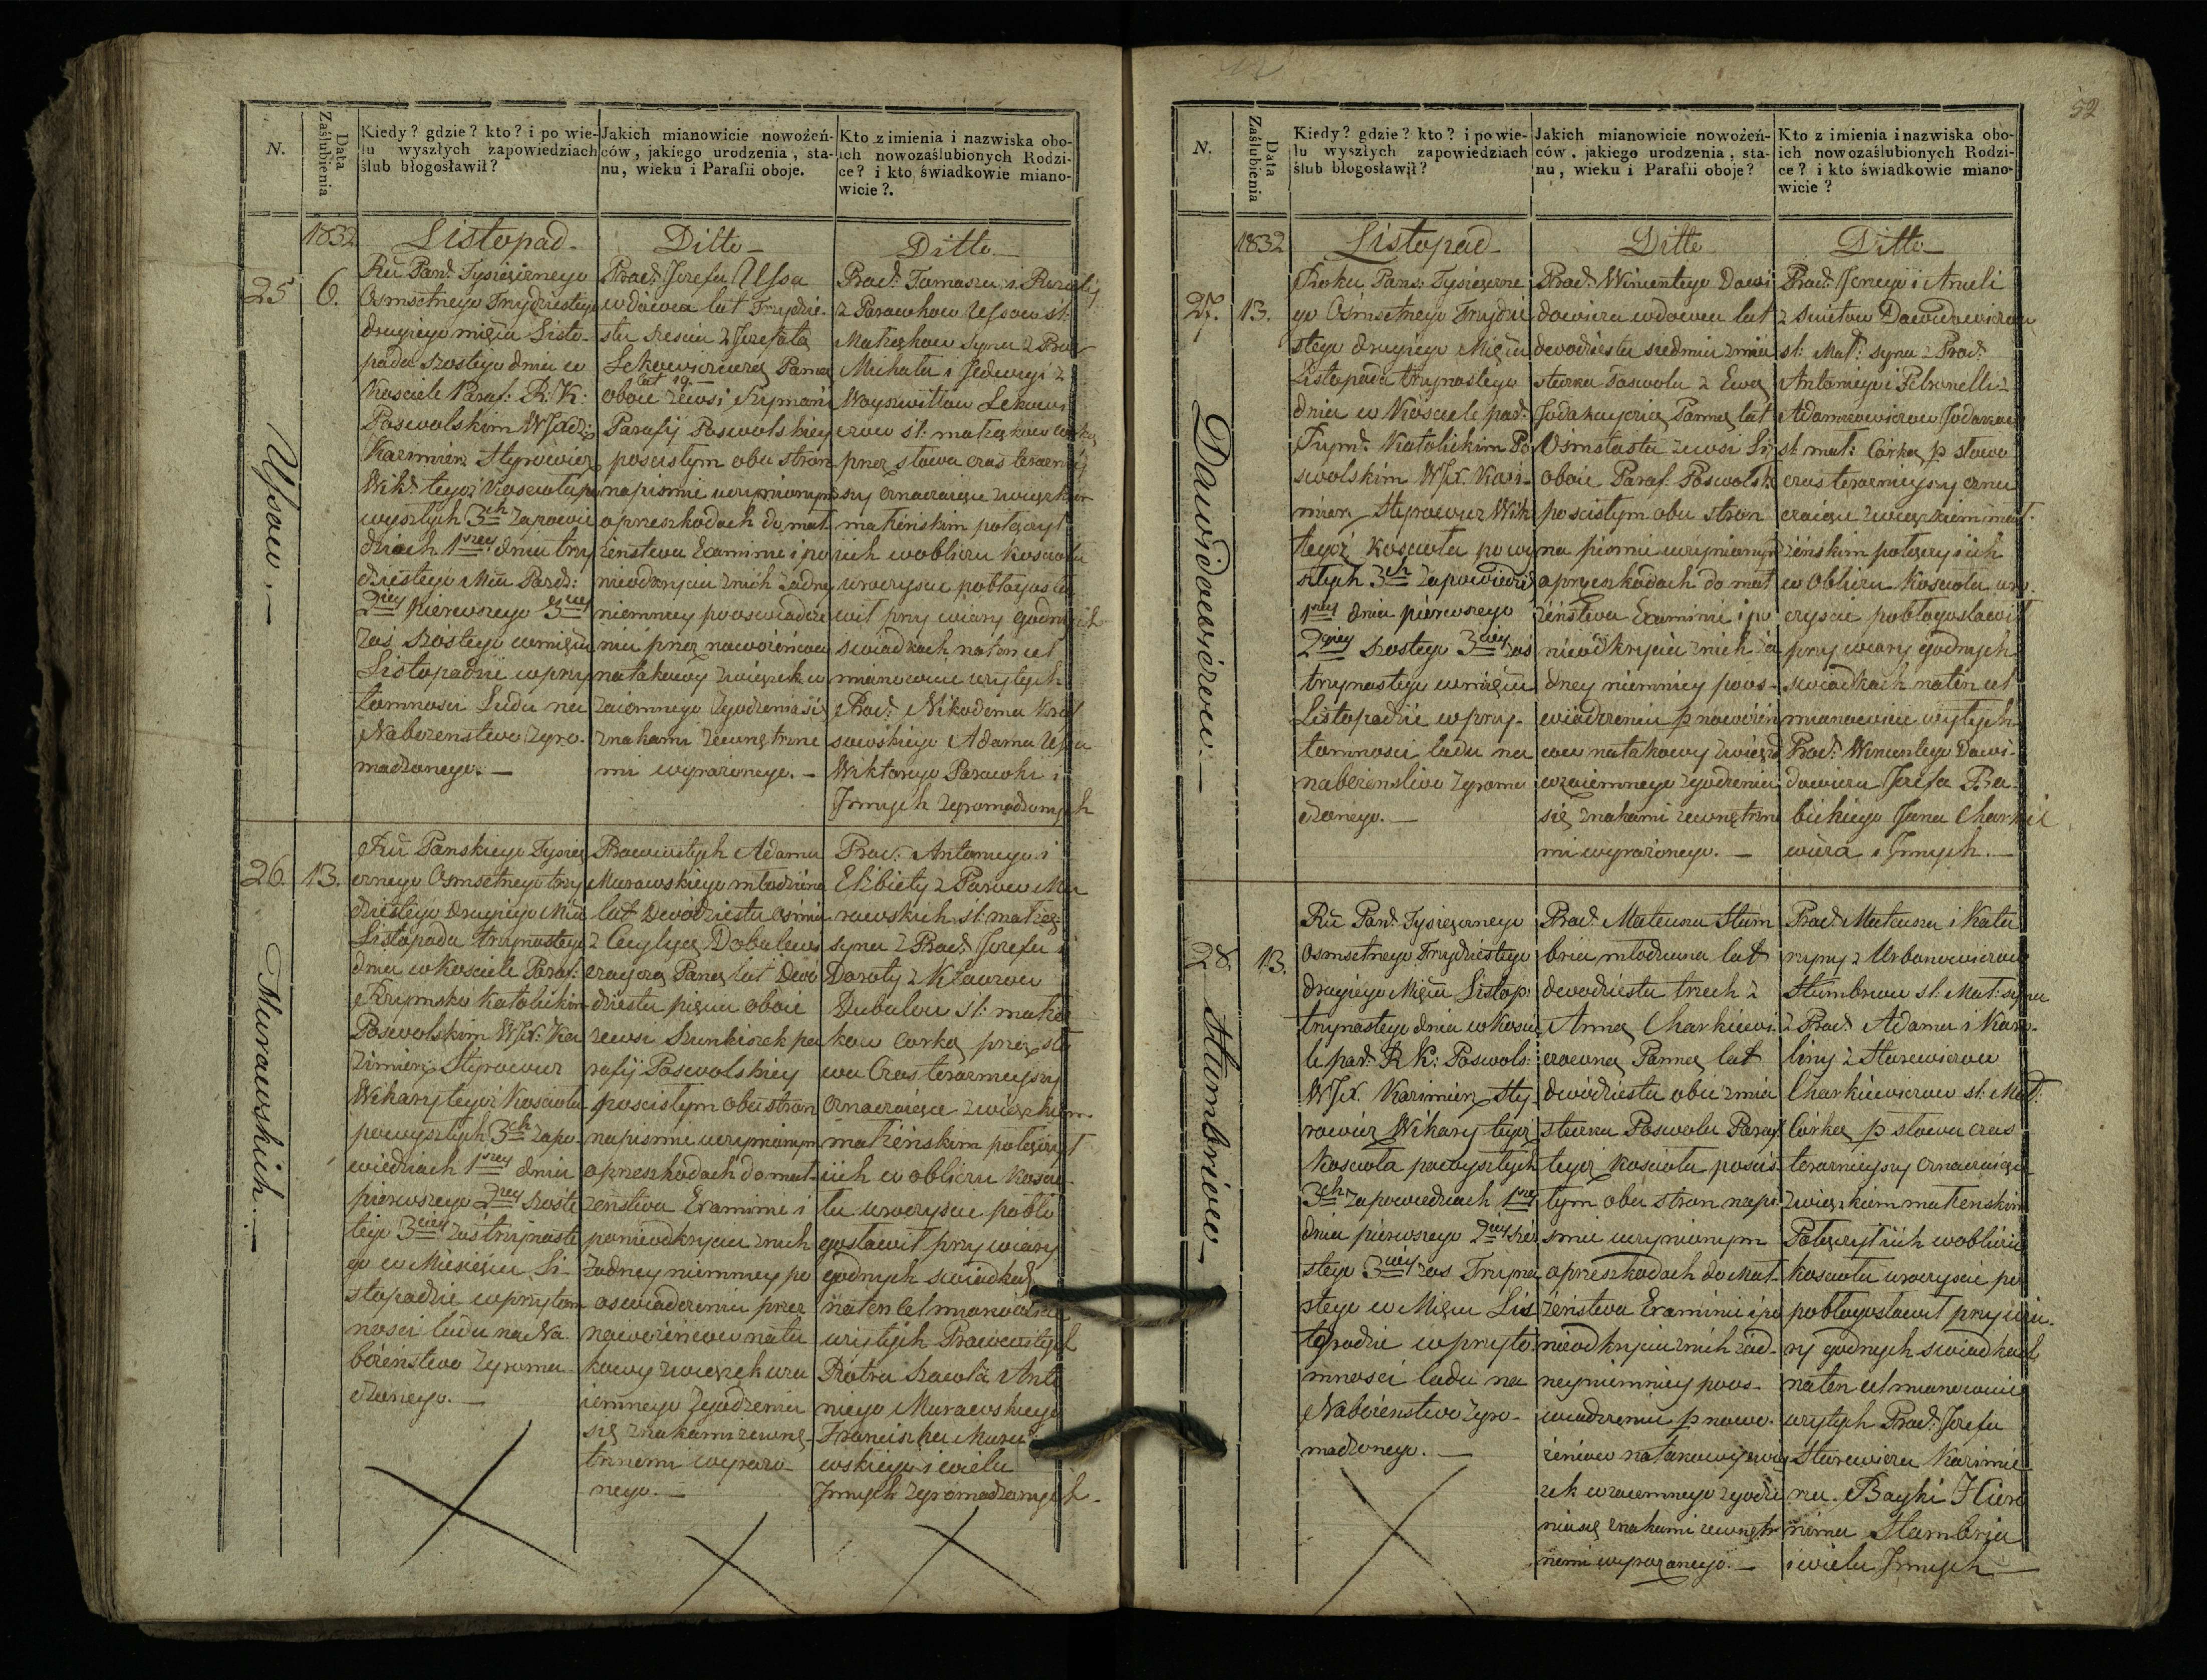 N.
Data Zaślubienia
Kiedy? gdzie? kto? i po wie-
lu wyszłych zapowiedziach
ślub błogosławił?
Jakich mianowicie nowożeń-
ców, jakiego urodzenia, sta-
nu, wieku i Parafii oboje.
Kto z imienia i nazwiska obo-
ich nowozaślubionych Rodzi-
ce? i kto świadkowie miano-
wicie?
1832
Listopad
Ditto
Ditto
25
6.
Ussow.
Ru Pań. Tysiącznego
Osmsetnego Trzydziestego
drugiego mięsia Listo-
pada szostego dnia w
Kosciele Paraf: R: K:
Poswolskim WJXdz:
Kazimierz Styrowicz
Wik. tegoż Koscioła po
wyszłych 3ch zapowie
dziach 1szey dnia trzy
dziestego Mca Pazdz:
2giey pierwszego 3ciey
zas szóstego w mięsiu
Listopadzie w przy
tomnosci Ludu na
Nabożenstwo zgro-
madzonego.
Prac. Jozefa Ussa
wdowca lat Trzydzie-
stu szesciu z Jozefatą
Lekowiczowną Panną
lat 19.
oboie ze wsi Szymani
Parafij Poswolskiey
po scisłym obu stron
na pismie uczynionym
o przeszkodach do mał
żenstwa Examinie i po
nieodkryciu z nich żadney
niemniey po oswiadcze
niu przez nowożeńcow
na takowy związek w
zaiemnego zgodzenia się
znakami zewnętrzne
mi wyrażonego.
Prac. Tomasza i Rozalij
z Parowkow Ussow sl:
Małżąkow syna z Prac.
Michała i Jedwigi z
Woyszwiłłow Lekowi
czow sl. małżąkow corką
przez słowa czas teraźniey
szy oznaczaiące związkiem
małżeńskim połączył
ich w obliczu kosciołu
uroczyscie pobłogosła
wił przy wiary godnych
swiadkach na ten cel
mianowicie wziętych
Prac. Nikodema Kraf
sowskiego Adama Ussa
Wiktorego Parowki i
Innych zgromadzonych
26
13.
Murawskich.
Ru Panskiego Tysią
cznego Osmsetnego trzy
dziestego drugiego Mca
Listopada trzynastego
dnia w Kosciele Paraf:
Rzymsko Katolickim
Poswolskim WJX. Ka
zimierz Styrowicz
Wikary tegoż Kosciołu
po wyszłych 3ch zapo-
wiedziach 1szey dnia
pierwszego 2giey szoste
tego 3ciey zaś trzynaste
go w Miesiącu Li-
stopadzie w przytom
nosci ludu na Na-
bożeństwo zgroma-
dzonego.
Pracowitych Adama
Murawskiego młodzienca
lat Dwódziestu ośmiu
z Cecylyą Dobulewi
czayczą Paną lat Dwó
dziestu pięciu oboie
ze wsi Szunkiszek pa
rafij Poswolskiey
po scisłym obu stron
na pismie uczynionym
o przeszkodach do mał-
żeństwa Examinie i
po nieodkryciu z nich
żadney niemniey po
oswiadczeniu przez
nowożeńcow na ta
kowy związek wza
iemnego zgodzenia
się znakami zewnę-
trznemi wyrażo
nego.
Prac. Antoniego i
Elżbiety z Parow Mu
rawskich sl. małżą
syna z Prac. Jozefa i
Doroty z Klawzow
Dubulow sl: małżą
kow Corką przez sło
wa Czas teraźnieyszy
oznaczaiące związkiem
małżeńskim połączył
ich w obliczu kosciu-
łu uroczyscie pobło
gosławił przy wiary
godnych swiadkach
na ten cel mianowicie
wziętych Pracowitych
Piotra Szawła Anto
niego Murawskiego
Franciszka Mura
wskiego i wielu
Innych zgromadzonych
52
N.
Data Zaślubienia
Kiedy? gdzie? kto? i po wie-
lu wyszłych zapowiedziach
ślub błogosławił?
Jakich mianowicie nowożeń-
ców, jakiego urodzenia, sta-
nu, wieku i Parafii oboje?
Kto z imienia i nazwiska obo-
ich nowozaślubionych Rodzi-
ce? i kto świadkowie miano-
wicie?
1832
Listopad
Ditto
Ditto
27.
13.
Dawidowiczow.
Roku Pans: Tysiączne
go Ośmsetnego Trzydzie
stego drugiego Mięsia
Listopada trzynastego
dnia w Kosciele par.
Rzym. Katolickim Po
swolskim WJX. Kazi-
mierz Styrowicz Wik
tegoż kosciola po wy
szłych 3ch zapowiedzia
1szey dnia pierwszego
2giey szostego 3ciey zaś
trzynastego w mięsiu
Listopadzie w przy-
tomnosci ludu na
nabożenstwo zgroma
dzonego.
Prac. Wincentego Dawi
dowicza wdowca lat
dwodziestu siedmiu z mia
steczka Poswola z Ewą
Jodakayczią Panną lat
Ośmstastu ze wsi Li
oboie Paraf: Poswolsk
po scisłym obu stron
na pismie uczynionym
o przeszkodach do mał
żeństwa Examinie i po
nieodkryciu z nich żá
dney niemniey poos-
wiadczeniu p nowożen
cow na takowy związek
wzaiemnego zgodzenia
się znakami zewnętrzne
mi wyrażonego.
Prac. Jerzego i Anieli
z Switow Dawidowiczow
sl: Mał: syna z Prac.
Antoniego i Petronelli z
Adamowiczow Jodakow
sl: mał: Córką p słowa
czas teraznieyszy ozna
czaiące związkiem mał-
żeńskim połączył ich
w Obliczu Kosciołu uro
czyscie pobłogosławił
przy wiary godnych
swiadkach na ten cel
mianowicie wziętych
Prac. Wincentego Dawi-
dowicza Jozefa Ba
bickiego Jana Charkie
wicza i Innych.
28
13.
Stumbriow
Ru Pań. Tysiącznego
Osmsetnego Trzydziestego
drugiego Mięsia Listop:
trzynastego dnia w Koscie
le par. R. K: Poswols:
WJX. Kazimierz Sty
rowicz Wikary tegoż
Kosciola po wyszłych
3ch zapowiedziach 1szey
dnia pierwszego 2giey szó
stego 3ciey zas Trzyna
stego w Mięsiu Lis
topadzie w przyto-
mnosci ludu na
Nabożenstwo zgro-
madzonego.
Prac. Mateusza Stum
bria młodziana lat
dwodziestu trzech z
Anną Charkiewi-
czowną Panną lat
dwódziestu oboie z mia
steczka Poswola Paraf
tegoż kosciołu po scis
łym obu stron na pi-
smie uczynionym
o przeszkodach do Mał-
żeństwa Examinie i po
nieodkryciu z nich żad-
ney niemniey poos-
wiadczeniu p nowo-
żeńcow na takowy zwią
zek wzaiemnego zgodze
nia się znakami zewnętrz
nemi wyrażonego.
Prac. Mateusza i Kata
rzyny z Urbanowiczow
Stumbriow sl: Mał: syna
z Prac. Adama i Karo-
liny z Starewiczow
Charkiewiczow sl: Mał:
Córką p słowa czas
teraznieyszy oznaczaiące
związkiem małżenskim
Połączył ich w obliczu
kosciołu uroczyscie po
pobłogosławił przy wia-
ry godnych swiadkach
na ten cel mianowicie
wziętych Prac. Jozefa
Starewicza Kazimie
rza Bayki Hiero
nima Stambrja
i wielu Innych